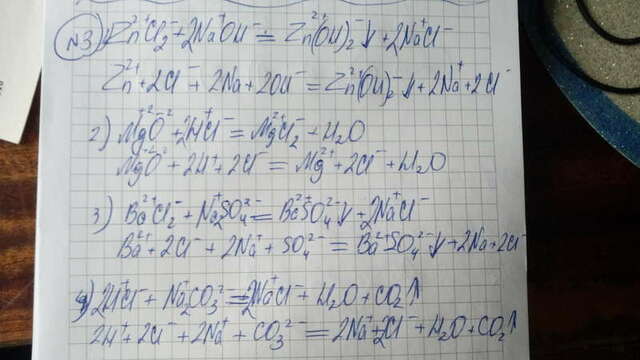 №3 1) Zn²⁺Cl₂⁻ + 2Na⁺OH⁻ = Zn²⁺(OH)₂⁻↓ + 2Na⁺Cl⁻
Zn²⁺ + 2Cl⁻ + 2Na + 2OH⁻ = Zn²⁺(OH)₂⁻↓ + 2Na⁺ + 2Cl⁻
2) Mg⁺²O⁻² + 2H⁺Cl⁻ = Mg²⁺Cl₂⁻ + H₂O
Mg⁺²O⁻² + 2H⁺ + 2Cl⁻ = Mg²⁺ + 2Cl⁻ + H₂O
3) Ba²⁺Cl₂⁻ + Na₂⁺SO₄²⁻ = Ba²⁺SO₄²⁻↓ + 2Na⁺Cl⁻
Ba²⁺ + 2Cl⁻ + 2Na⁺ + SO₄²⁻ = Ba²⁺SO₄²⁻↓ + 2Na + 2Cl⁻
4) 2H⁺Cl⁻ + Na₂⁺CO₃²⁻ = 2Na⁺Cl⁻ + H₂O + CO₂↑
2H⁺ + 2Cl⁻ + 2Na⁺ + CO₃²⁻ = 2Na⁺ + 2Cl⁻ + H₂O + CO₂↑